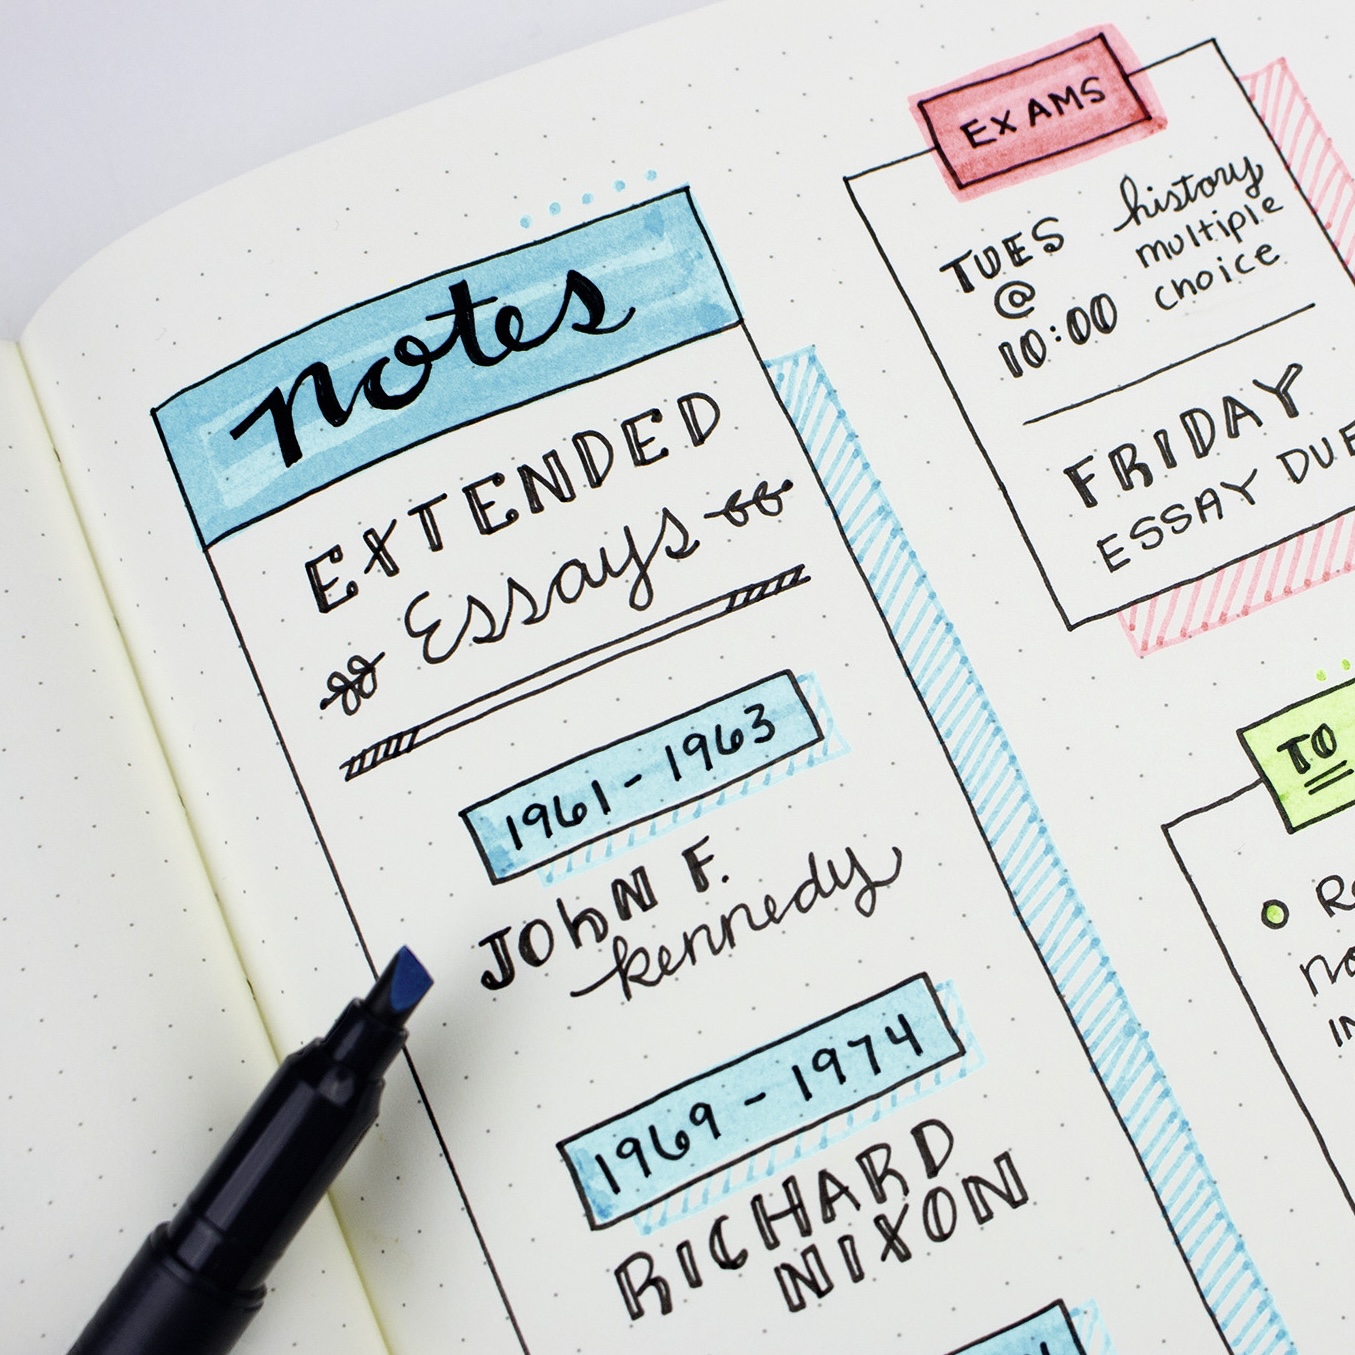 notes
EXTENDED
Essays
1961-1963
JOHN F.
kennedy
1969 - 1974
RICHARD
NIXON
EXAMS
TUES
@
10:00
history
multiple
choice
FRIDAY
ESSAY DUE
TO